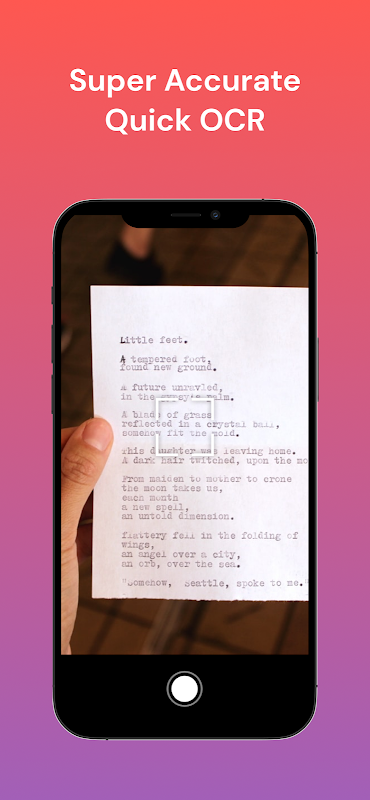 Super Accurate
Quick OCR
Little feet.
A tempered foot,
found new ground.
A future unravled,
in the gypsy's palm.
A blade of grass
reflected in a crystal ball,
somehow fit the mold.
This daughter was leaving home.
A dark hair twitched, upon the mo
From maiden to mother to crone
the moon takes us,
each month
a new spell,
an untold dimension.
flattery fell in the folding of
wings,
an angel over a city,
an orb, over the sea.
"Somehow, Seattle, spoke to me."